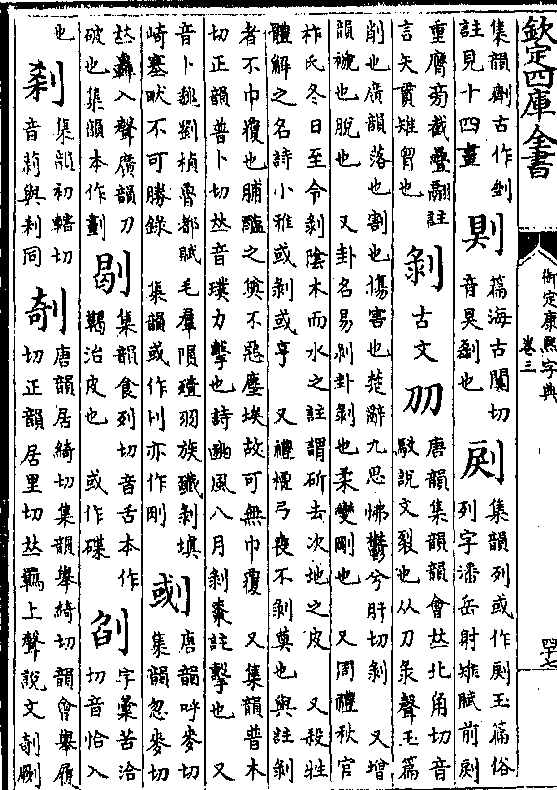 欽定四庫全書
御定康熙字典
卷三
集韻劑古作
註見十四畫
篇海古闃切
音狊剄也
集韻列或作 玉篇俗
列字潘岳射雉賦前
重膺旁截疊翮註
言矢貫雉胷也
剝
古文
唐韻集韻韻會𠀤北角切音
駮說文裂也从刀彔聲玉篇
削也廣韻落也割也傷害也楚辭九思怫鬱兮肝切剝 又增
韻褫也脫也 又卦名易剝卦剝也柔變剛也 又周禮秋官
柞氏冬日至令剝陰木而水之註謂斫去次地之皮 又殺牲
體解之名詩小雅或剝或亨 又禮檀弓喪不剝奠也與註剝
者不巾覆也脯醢之奠不惡塵埃故可無巾覆 又集韻普木
切正韻普卜切𠀤音璞力擊也詩豳風八月剝棗註擊也 又
音卜魏劉楨魯都賦毛羣隕殪羽族殲剝塡
崎塞畎不可勝錄 集韻或作 亦作
唐韻呼麥切
集韻忽麥切
𠀤轟入聲廣韻刀
破也集韻本作劃
集韻食列切音舌本作
治皮也 或作磔
字彙苦洽
切音恰入
也
集韻初轄切
與刹同
剞
唐韻居綺切集韻舉綺切韻會舉履
切正韻居里切𠀤羈上聲說文剞劂